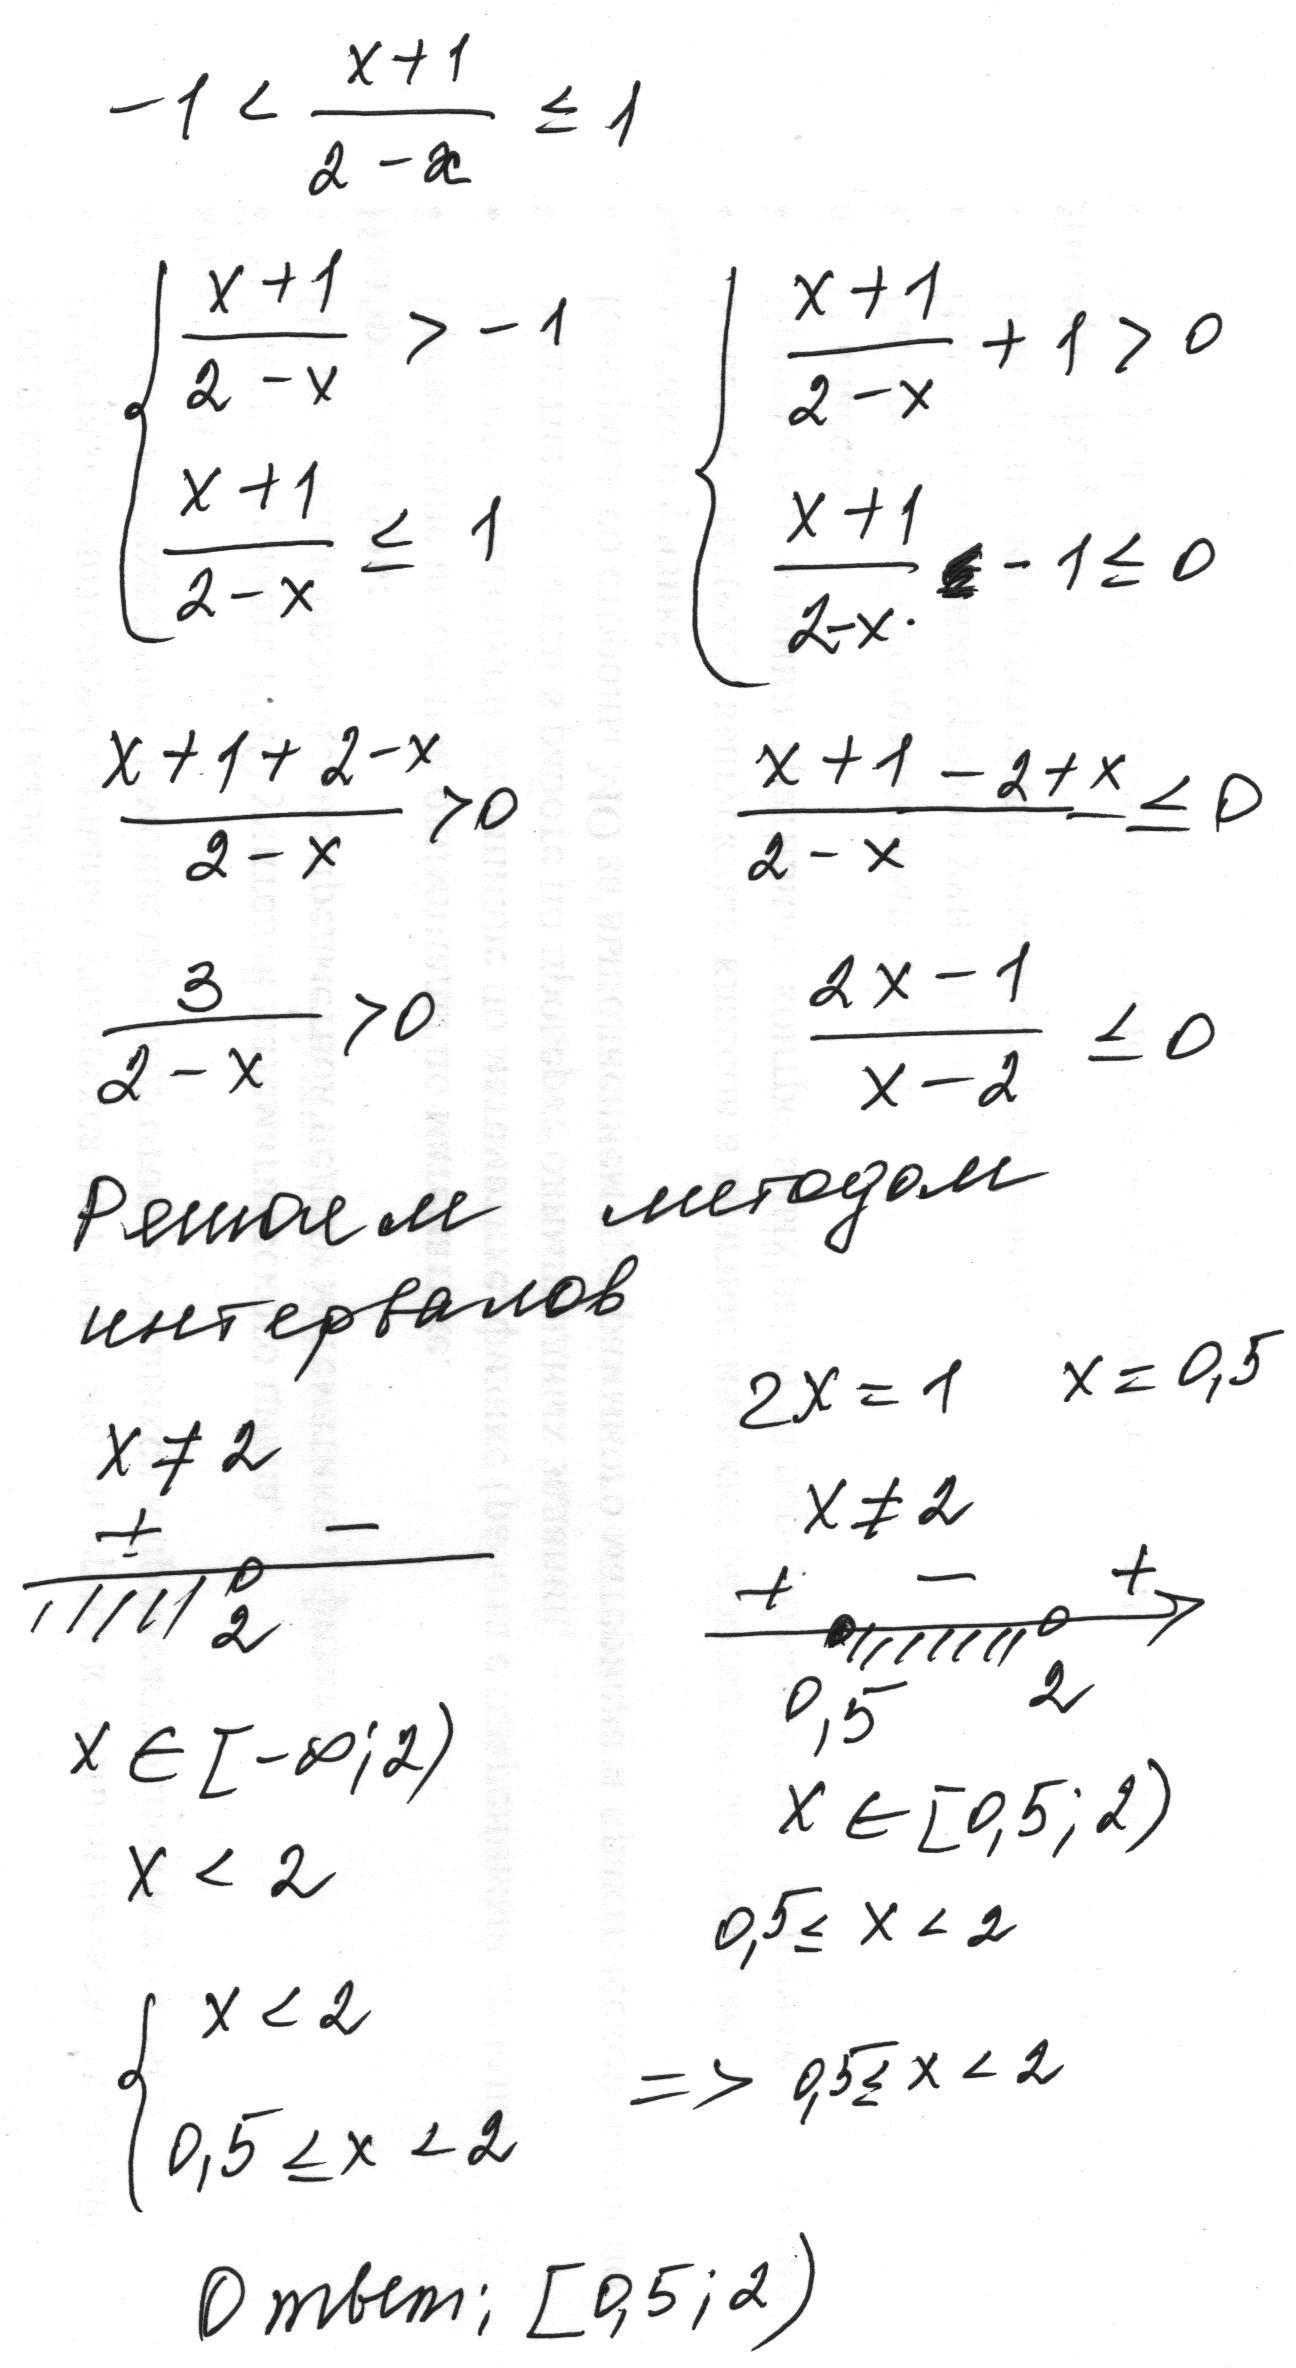 -1 < (x+1)/(2-x) ≤ 1
{ (x+1)/(2-x) > -1
(x+1)/(2-x) ≤ 1
{ (x+1)/(2-x) + 1 > 0
(x+1)/(2-x) - 1 ≤ 0
(x+1+2-x)/(2-x) > 0
(x+1-2+x)/(2-x) ≤ 0
3/(2-x) > 0
(2x-1)/(x-2) ≤ 0
Решаем методом
интервалов
x ≠ 2
+ −
2
x ∈ [-∞; 2)
x < 2
2x = 1 x = 0,5
x ≠ 2
+ − +
0,5 2
x ∈ [0,5; 2)
0,5 ≤ x < 2
{ x < 2
0,5 ≤ x < 2
=> 0,5 ≤ x < 2
Ответ: [0,5; 2)